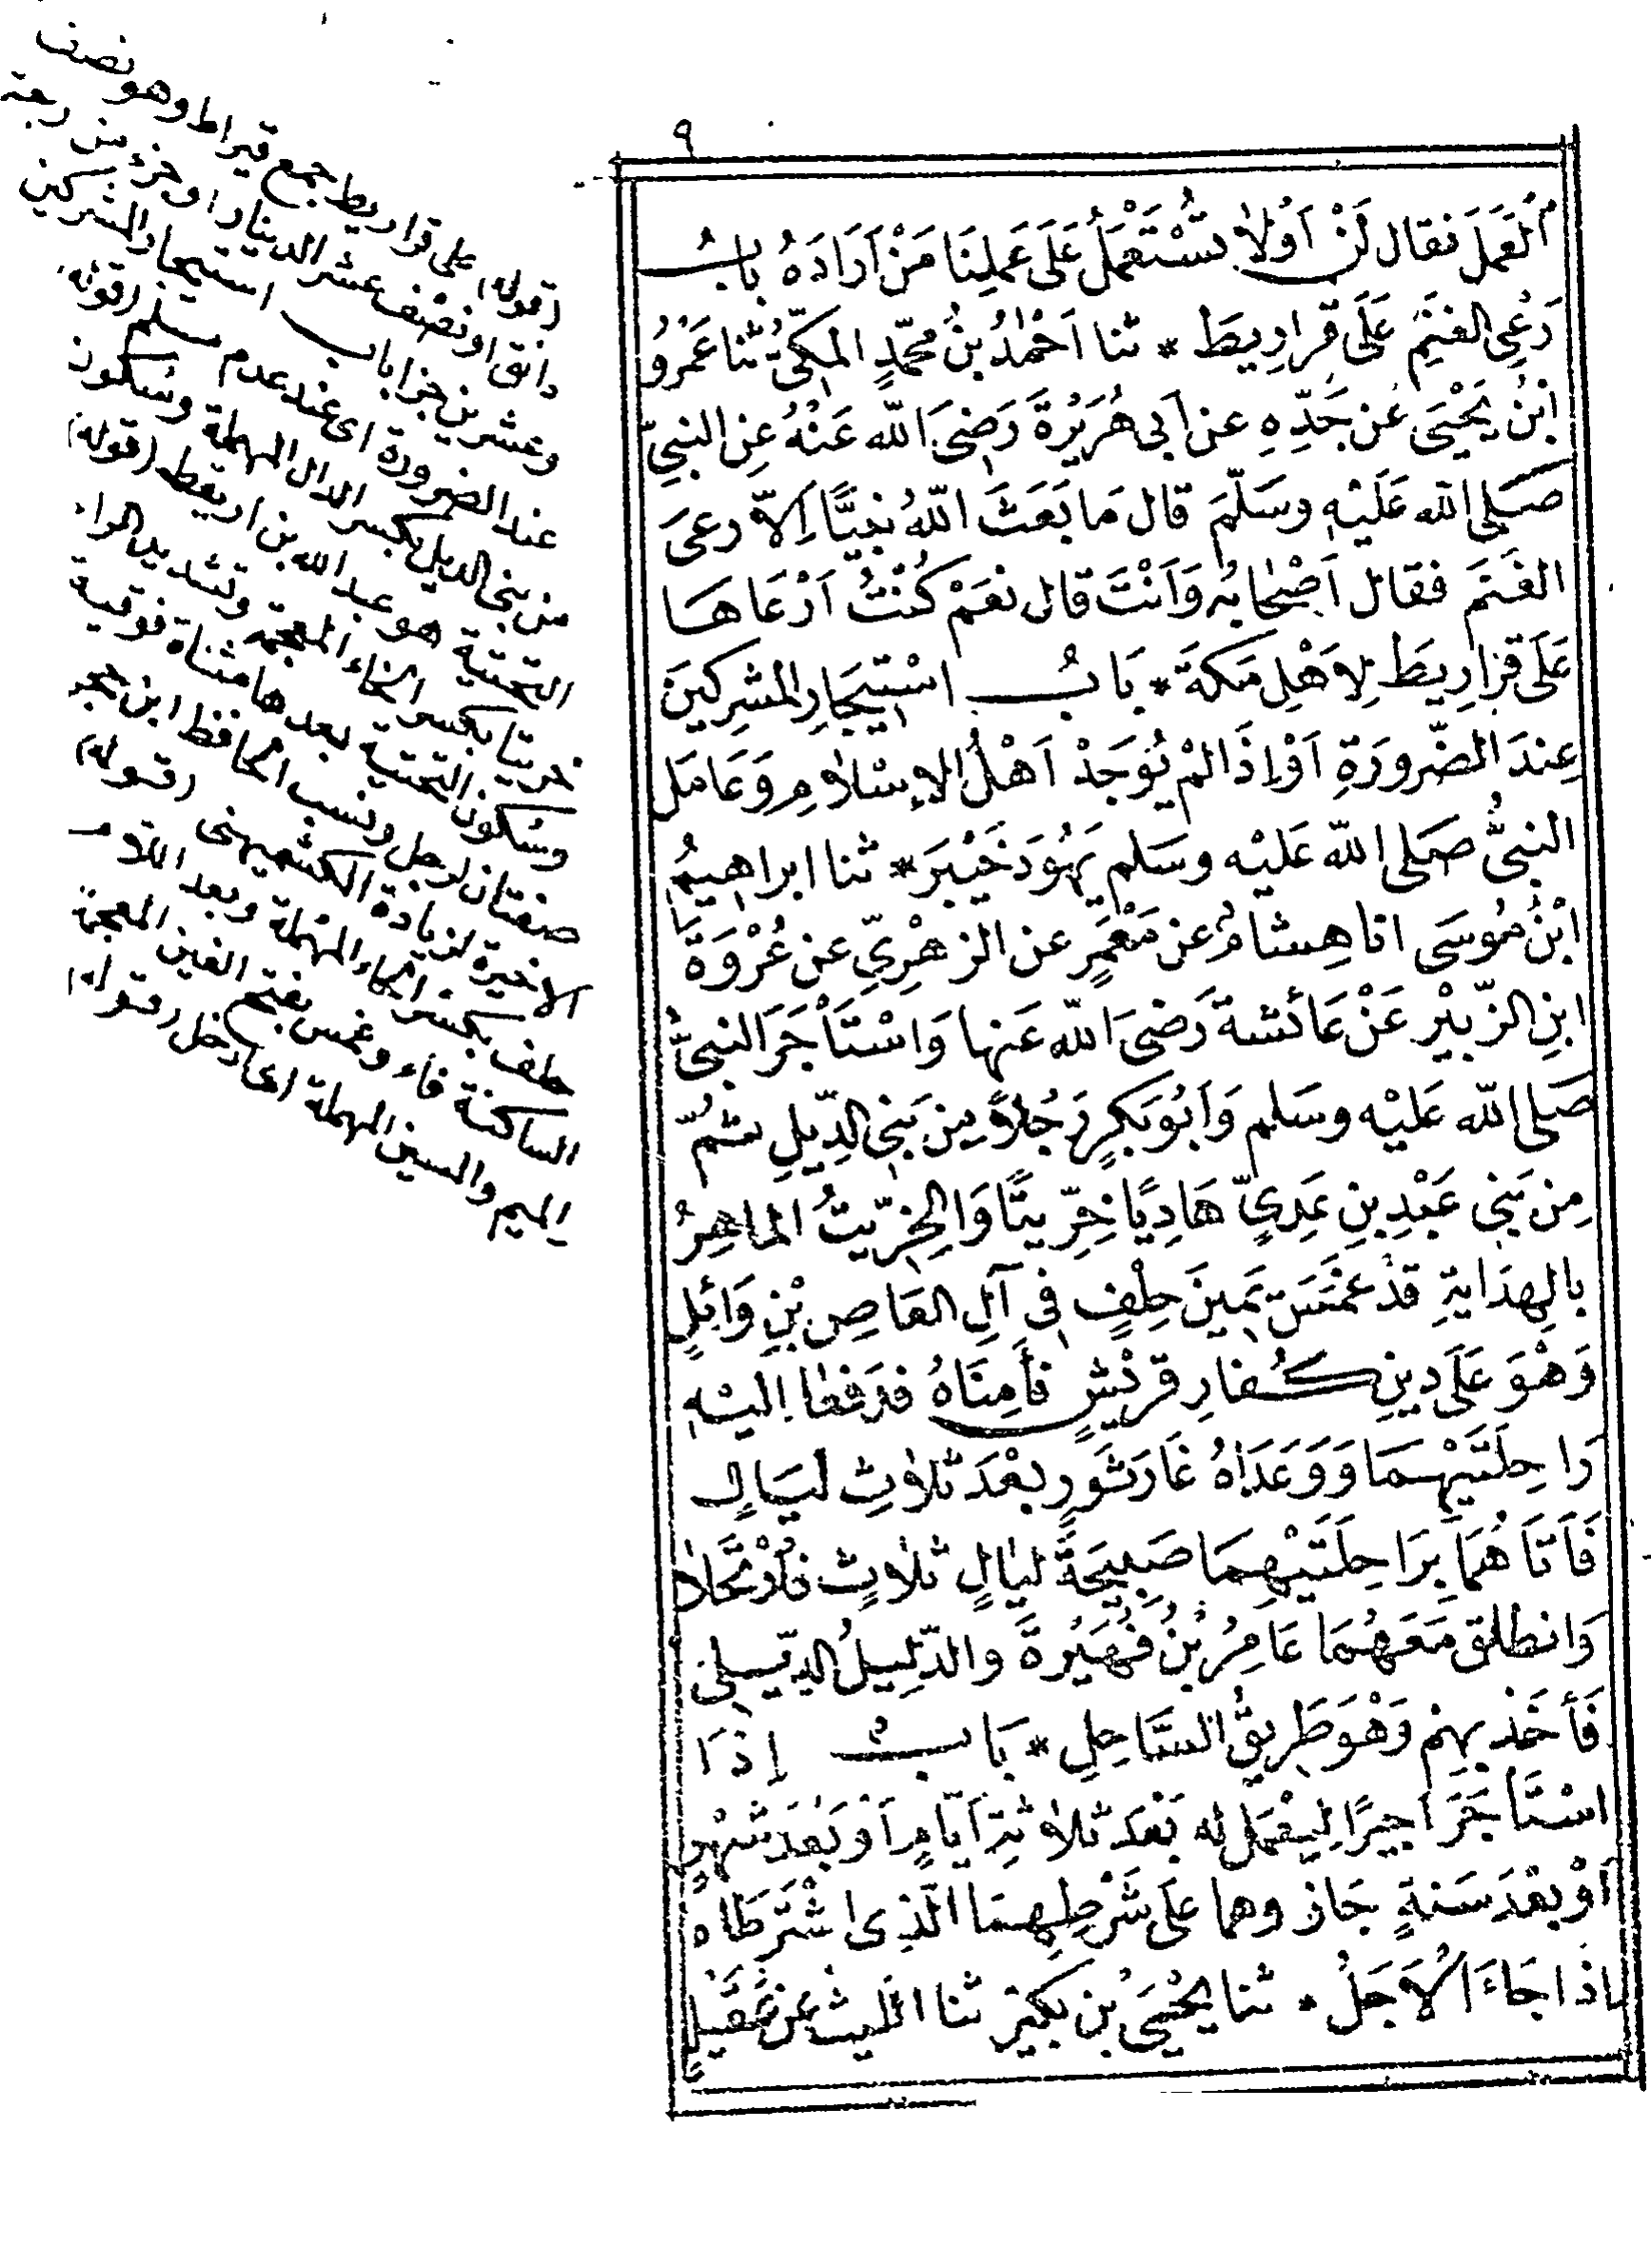 ٩
العَمَلَ فقال لَنْ اَوْلاَ نَسْتَعْمِلُ عَلَى عَمَلِنَا مَنْ اَرَادَهُ بابُ
رَعْىِ الغنَمِ عَلَى قرارِيطَ * ثنا اَحْمَدُ بنُ محمّدٍ المكىُّ ثنا عَمْرُو
ابْنُ يَحْيَى عَن جَدِّهِ عن اَبى هُرَيْرَةَ رَضىَ الله عَنْهُ عن النبىِّ
صَلى الله عَلَيْهِ وسَلّمَ قال مَا بَعَثَ اللهُ نبيًّا اِلاّ رعىَ
الغَنَمَ فقال اَصْحَابُه وَاَنْتَ قال نعَمْ كُنْتُ اَرْعَاهَا
عَلَى قرارِيطَ لِاَهْلِ مَكةَ * بَابُ اسْتيجَارِ المشرِكينَ
عِندَ الضّرورَةِ اَوْ اِذَا لمْ يُوجَدْ اَهْلُ الاِسْلاَمِ وَعَامَل
النبىُّ صَلى الله عَليْه وسَلم يَهُودَ خَيْبَرَ * ثنا ابراهيمُ
ابْنُ مُوسَى انا هِشامُ عن مَعْمَرٍ عن الزهْرِىِّ عن عُرْوَةَ
ابنِ الزّبيْرِ عَنْ عَائشة رَضىَ الله عَنها وَاسْتَأجَرَ النبىُّ
صَلى الله عَليْه وسَلم وَاَبُو بَكرٍ رَجُلاً مِن بَنى الدِّيلِ ثمّ
مِن بَنى عَبْدِ بنِ عَدِىٍّ هَادِيًا خِرِّيتًا وَالخِرّيتُ الماهِرُ
بالهِدَايَةِ قدْ غمَسَ يَمينَ حِلْفٍ فى آلِ العَاصِ بْنِ وَائلٍ
وَهْوَ عَلَى دِينِ كُفارِ قرَيْشٍ فأمِنَاهُ فدَفعَا اليْهِ
رَاحِلَتَيْهِمَا وَوَعَدَاهُ غَارَ ثَورٍ بعْدَ ثلاَثِ لَيَالٍ
فَاَتَاهُمَا بِرَاحِلَتَيْهِمَا صَبِيحَةَ ليَالٍ ثلاثٍ فَارْتَحَلاَ
وَانطلق مَعَهُمَا عَامِرُ بْنُ فُهَيْرةَ والدّلِيلُ الدّيلى
فَأخَذ بِهِمْ وَهْوَ طَرِيقُ السَّاحِلِ * بَابُ اِذَا
اسْتَأجَرَ اَجيرًا لِيَعْمَلَ له بَعْدَ ثلاثةِ اَيّامٍ اَوْ بَعْدَ شَهْرٍ
اَوْ بعْدَ سَنةٍ جَازَ وهما عَلى شَرْطِهِمَا الَّذِى اشْتَرَطَاه
اِذا جَاءَ الاَجَلُ * ثنا يَحْيَى بْن بكيْرٍ ثنا الليث عَن عُقَيْلٍ
(قوله) على قراريط جمع قيراط وهو نصف
دانق او نصف عشر الدينار او جزء من ربعة
وعشرين جزا باب استيجار المشركين
عند الضرورة اى عند عدم مسلم (قوله)
من بنى الديل بكسر الدال المهملة وسكون
التحتية هو عبد الله بن اريقط (قوله)
خريتا بكسر الخاء المعجمة وتشديد الراء
وسكون التحتية بعدها مثناة فوقية
صفتان لرجل ونسب الحافظ ابن حجر
الاخيرة لزيادة الكشميهنى (قوله)
حلف بكسر الحاء المهملة وبعد اللام
الساكنة فاء وغمس بفتح الغين المعجمة
والميم والسين المهملة اى دخل (قوله)